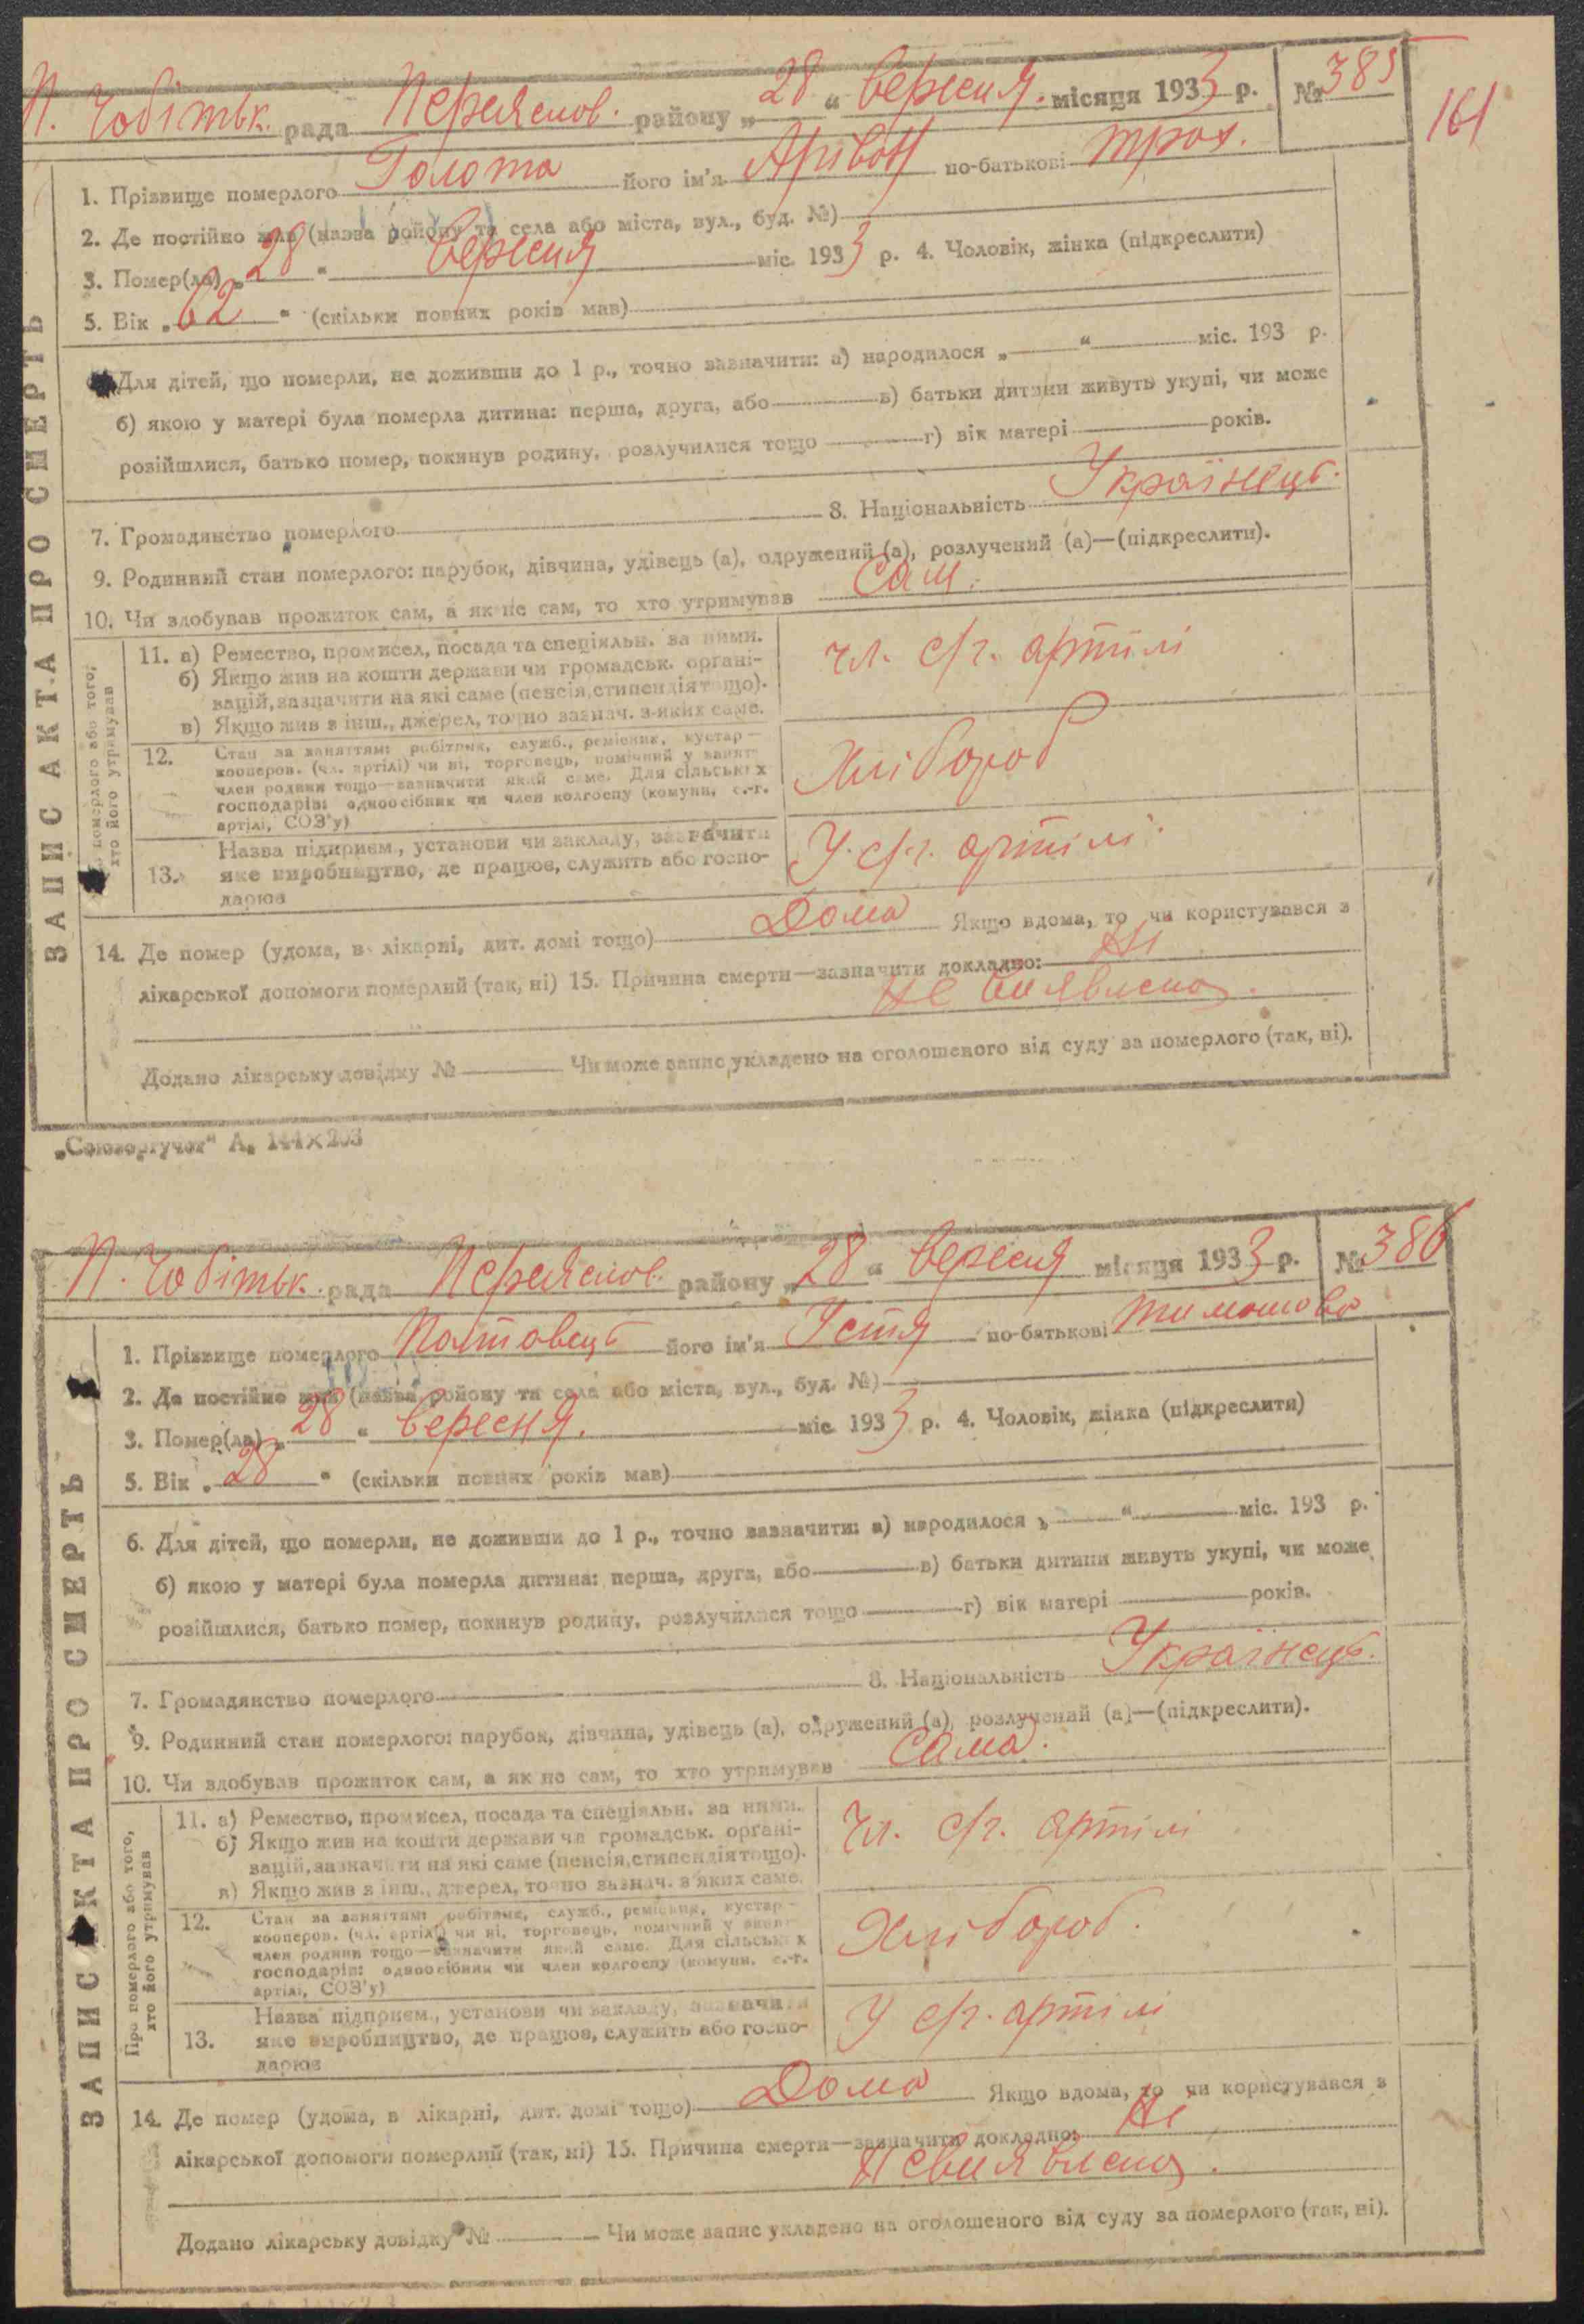 П. Чобітьк. рада Переяслов. району „28“ вересня. місяця 1933 р. № 385
161
1. Прізвище померлого Голота його ім'я Арівон по-батькові троx.
2. Де постійно жив (назва району та села або міста, вул., буд. №)
3. Помер(ла) „28“ вересня міс. 1933 р. 4. Чоловік, жінка (підкреслити)
5. Вік „62“ (скільки повних років мав)
Для дітей, що померли, не доживши до 1 р., точно зазначити: а) народилося „ “ міс. 193 р.
б) якою у матері була померла дитина: перша, друга, або в) батьки дитини живуть укупі, чи може
розійшлися, батько помер, покинув родину, розлучилися тощо г) вік матері років.
7. Громадянство померлого 8. Національність Українець.
9. Родинний стан померлого: парубок, дівчина, удівець (а), одружений (а), розлучений (а)—(підкреслити).
10. Чи здобував прожиток сам, а як не сам, то хто утримував Сам.
ЗАПИС АКТА ПРО СМЕРТЬ
померлого або того, хто його утримував
11. а) Ремество, промисел, посада та спеціяльн. за ними.
б) Якщо жив на кошти держави чи громадськ. органі-
зацій, зазначити на які саме (пенсія, стипендія тощо).
в) Якщо жив з інш., джерел, точно зазнач. з яких саме.
чл. с/г. артілі
12. Стан за заняттям: робітник, служб., ремісник, кустар—
кооперов. (чл. артілі) чи ні, торговець, помічний у занят.
член родини тощо—зазначити який саме. Для сільських
господарів: одноосібник чи член колгоспу (комуни, с.-г.
артілі, СОЗ'у)
Хлібороб
13. Назва підприєм., установи чи закладу, зазначити
яке виробництво, де працює, служить або госпо-
дарює
У с/г. артілі
14. Де помер (удома, в лікарні, дит. домі тощо) Дома Якщо вдома, то чи користувався з
лікарської допомоги померлий (так, ні) 15. Причина смерти—зазначити докладно: Ні
не виявлена.
Додано лікарську довідку № Чи може запис укладено на оголошеного від суду за померлого (так, ні).
„Союзоргучот“ А₅ 144×203
П. Чобітьк. рада Переяслов. району „28“ вересня місяця 1933 р. № 386
1. Прізвище померлого Полтовець його ім'я Устя по-батькові тимошова
2. Де постійно жив (назва району та села або міста, вул., буд. №)
3. Помер(ла) „28“ вересня. міс. 1933 р. 4. Чоловік, жінка (підкреслити)
5. Вік „28“ (скільки повних років мав)
6. Для дітей, що померли, не доживши до 1 р., точно зазначити: а) народилося „ “ міс. 193 р.
б) якою у матері була померла дитина: перша, друга, або в) батьки дитини живуть укупі, чи може
розійшлися, батько помер, покинув родину, розлучилися тощо г) вік матері років.
7. Громадянство померлого 8. Національність Українець.
9. Родинний стан померлого: парубок, дівчина, удівець (а), одружений (а), розлучений (а)—(підкреслити).
10. Чи здобував прожиток сам, а як не сам, то хто утримував Сама.
ЗАПИС АКТА ПРО СМЕРТЬ
Про померлого або того, хто його утримував
11. а) Ремество, промисел, посада та спеціяльн. за ними.
б) Якщо жив на кошти держави чи громадськ. органі-
зацій, зазначити на які саме (пенсія, стипендія тощо).
в) Якщо жив з інш., джерел, точно зазнач. з яких саме.
Чл. с/г. артілі
12. Стан за заняттям: робітник, служб., ремісник, кустар—
кооперов. (чл. артілі) чи ні, торговець, помічний у занят.
член родини тощо—зазначити який саме. Для сільських
господарів: одноосібник чи член колгоспу (комуни, с.-г.
артілі, СОЗ'у)
Хлібороб.
13. Назва підприєм., установи чи закладу, зазначити
яке виробництво, де працює, служить або госпо-
дарює
У с/г. артілі
14. Де помер (удома, в лікарні, дит. домі тощо) Дома Якщо вдома, то чи користувався з
лікарської допомоги померлий (так, ні) 15. Причина смерти—зазначити докладно: Ні
Невиявлена.
Додано лікарську довідку № Чи може запис укладено на оголошеного від суду за померлого (так, ні).